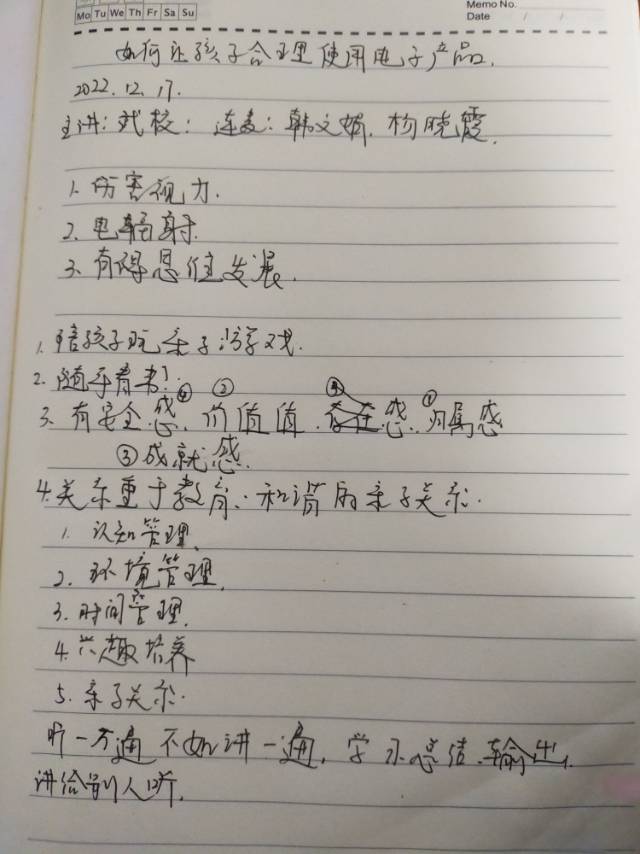 Mo Tu We Th Fr Sa Su
Memo No.
Date / /
如何让孩子合理使用电子产品.
2022.12.17.
主讲:武校: 连麦:韩文娟.杨晓霞.
1. 伤害视力.
2. 电辐射.
3. 有碍思维发展.
1. 陪孩子玩亲子游戏.
2. 随手看书!
3. 有安全感④、价值值②.存在感⑤.归属感①
③成就感.
4. 关系重于教育.和谐的亲子关系.
1. 认知管理.
2. 环境管理.
3. 时间管理.
4. 兴趣培养
5. 亲子关系.
听一万遍不如讲一遍,学习总结.输出.
讲给别人听.